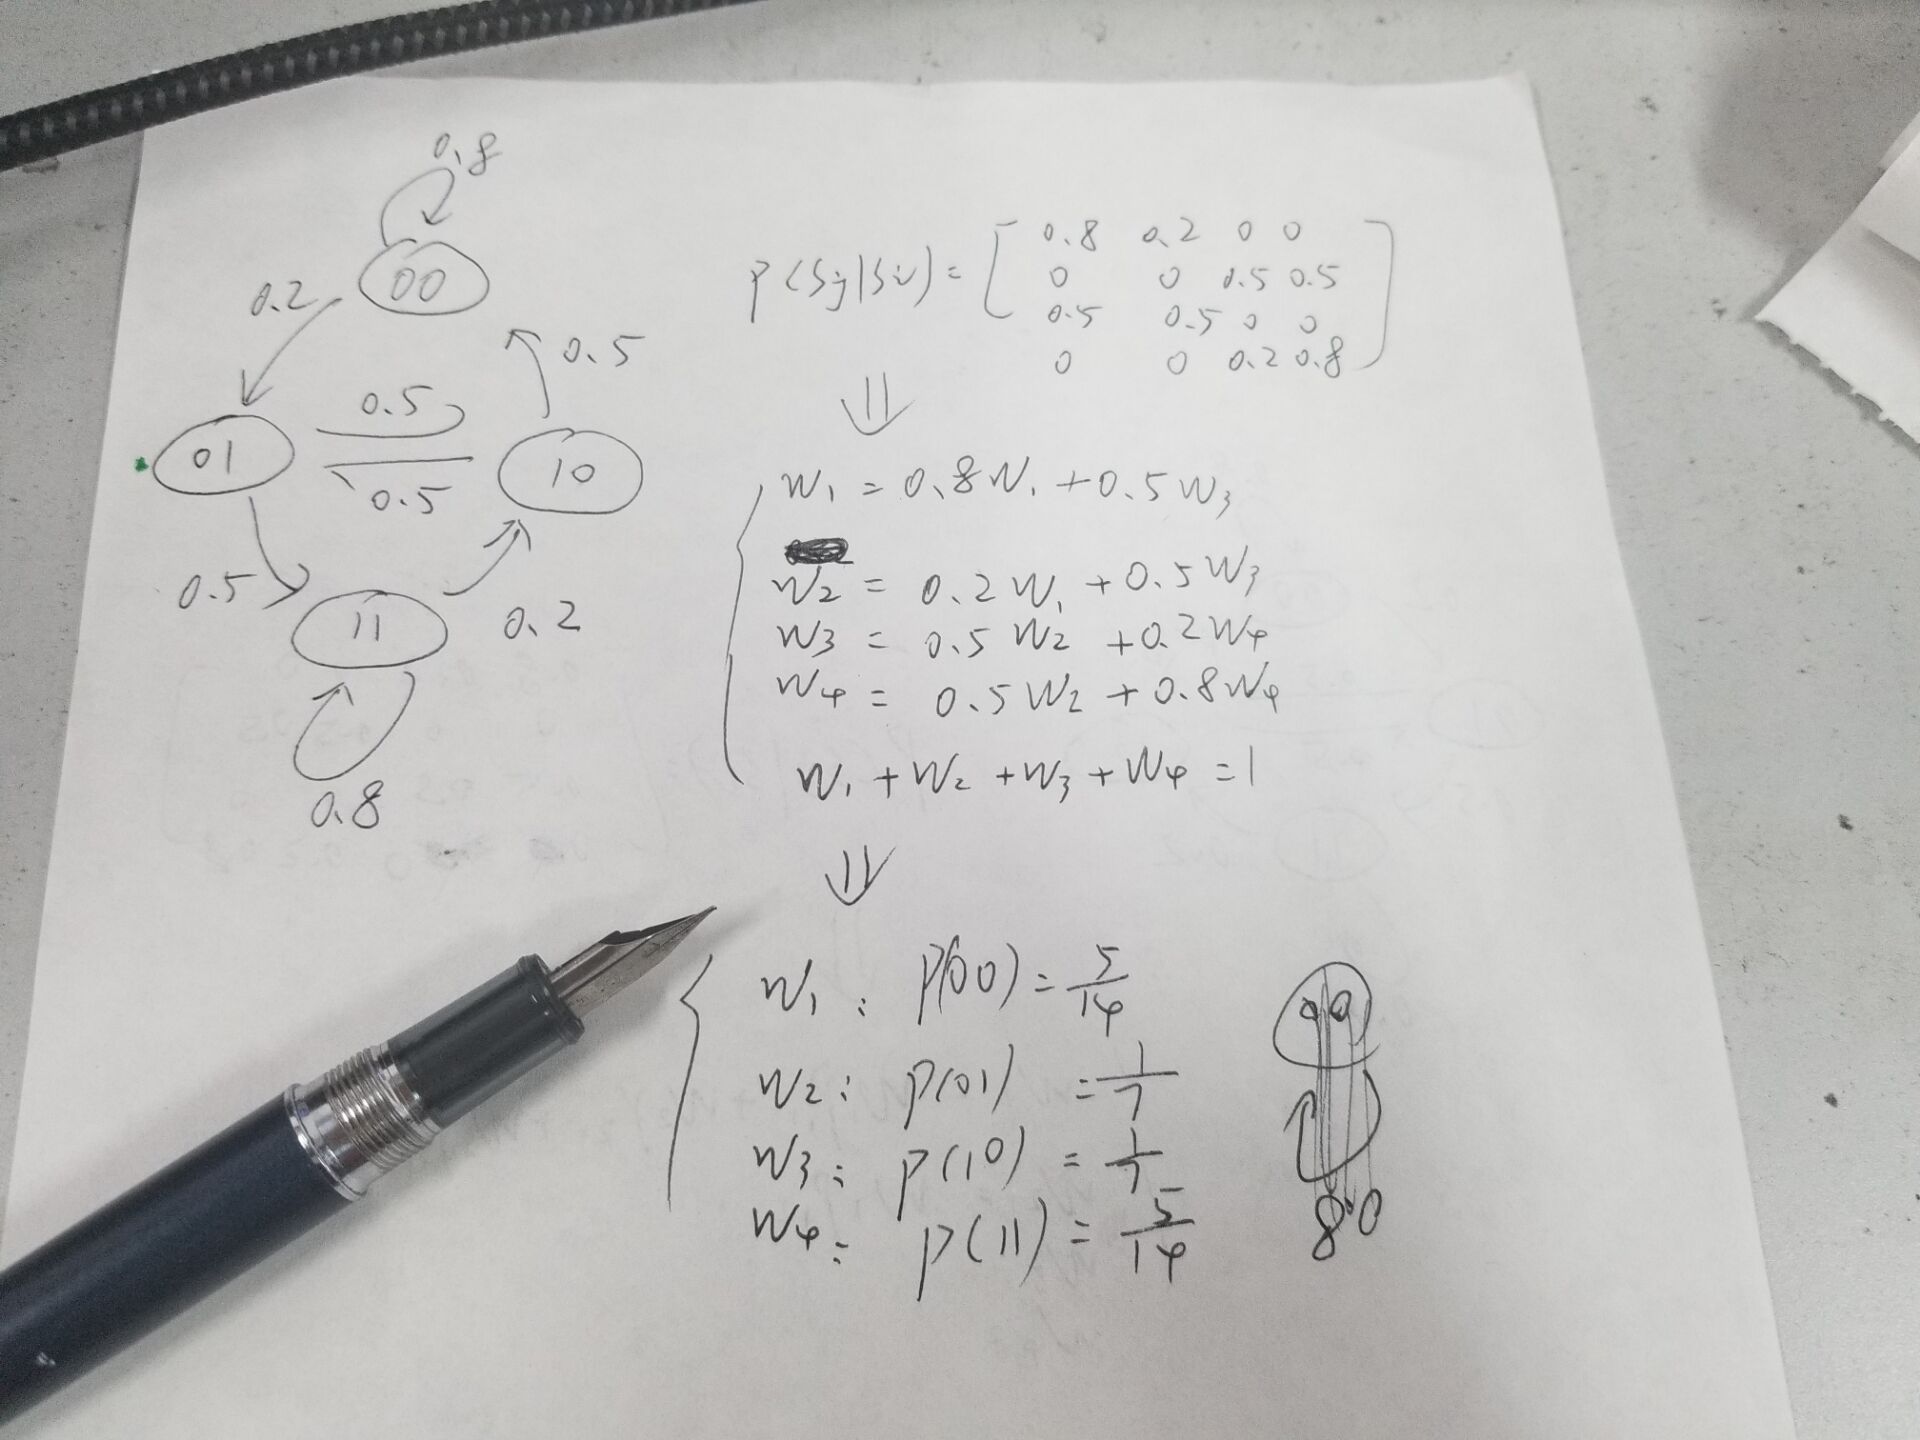 0.8
00
0.2
0.5
0.5
01
10
0.5
0.5
11
0.2
0.8
P(Sj|Si) = [ 0.8 0.2 0 0
0 0 0.5 0.5
0.5 0.5 0 0
0 0 0.2 0.8 ]
⇓
W1 = 0.8W1 + 0.5W3
W2 = 0.2W1 + 0.5W3
W3 = 0.5W2 + 0.2W4
W4 = 0.5W2 + 0.8W4
W1 + W2 + W3 + W4 = 1
⇓
W1: P(00) = 5/14
W2: P(01) = 1/7
W3: P(10) = 1/7
W4: P(11) = 5/14
00